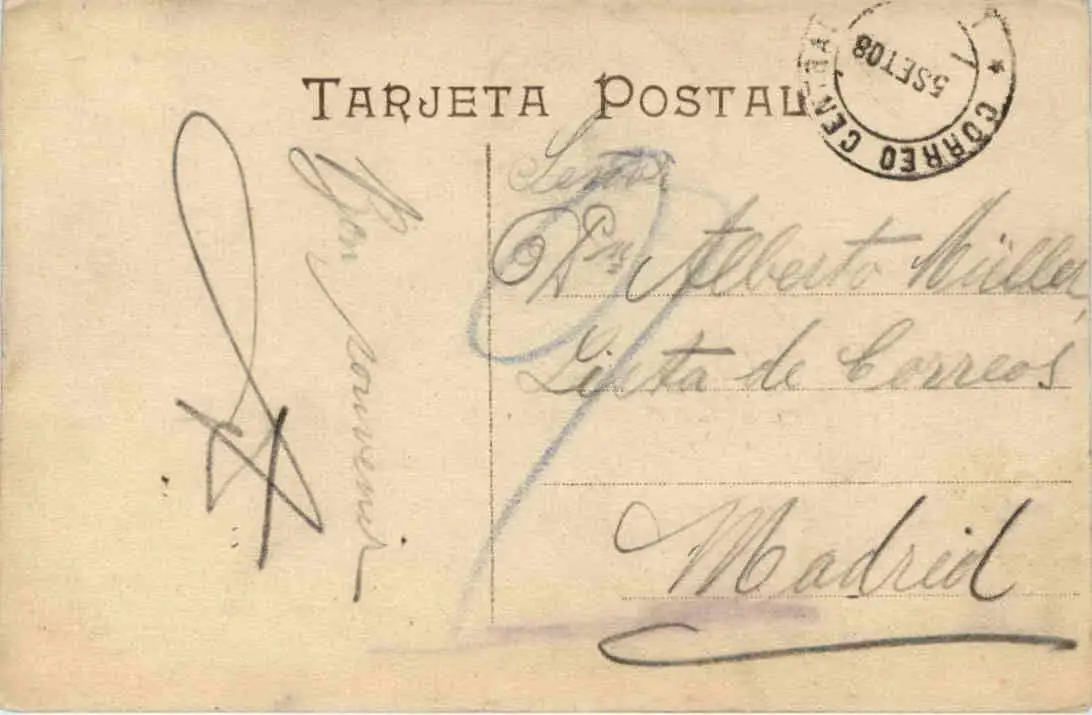 TARJETA POSTAL
CORREO CENTRAL
5 SET 08
Bon souvenir
Señor
Dn Alberto Müller,
Lista de Correos
Madrid